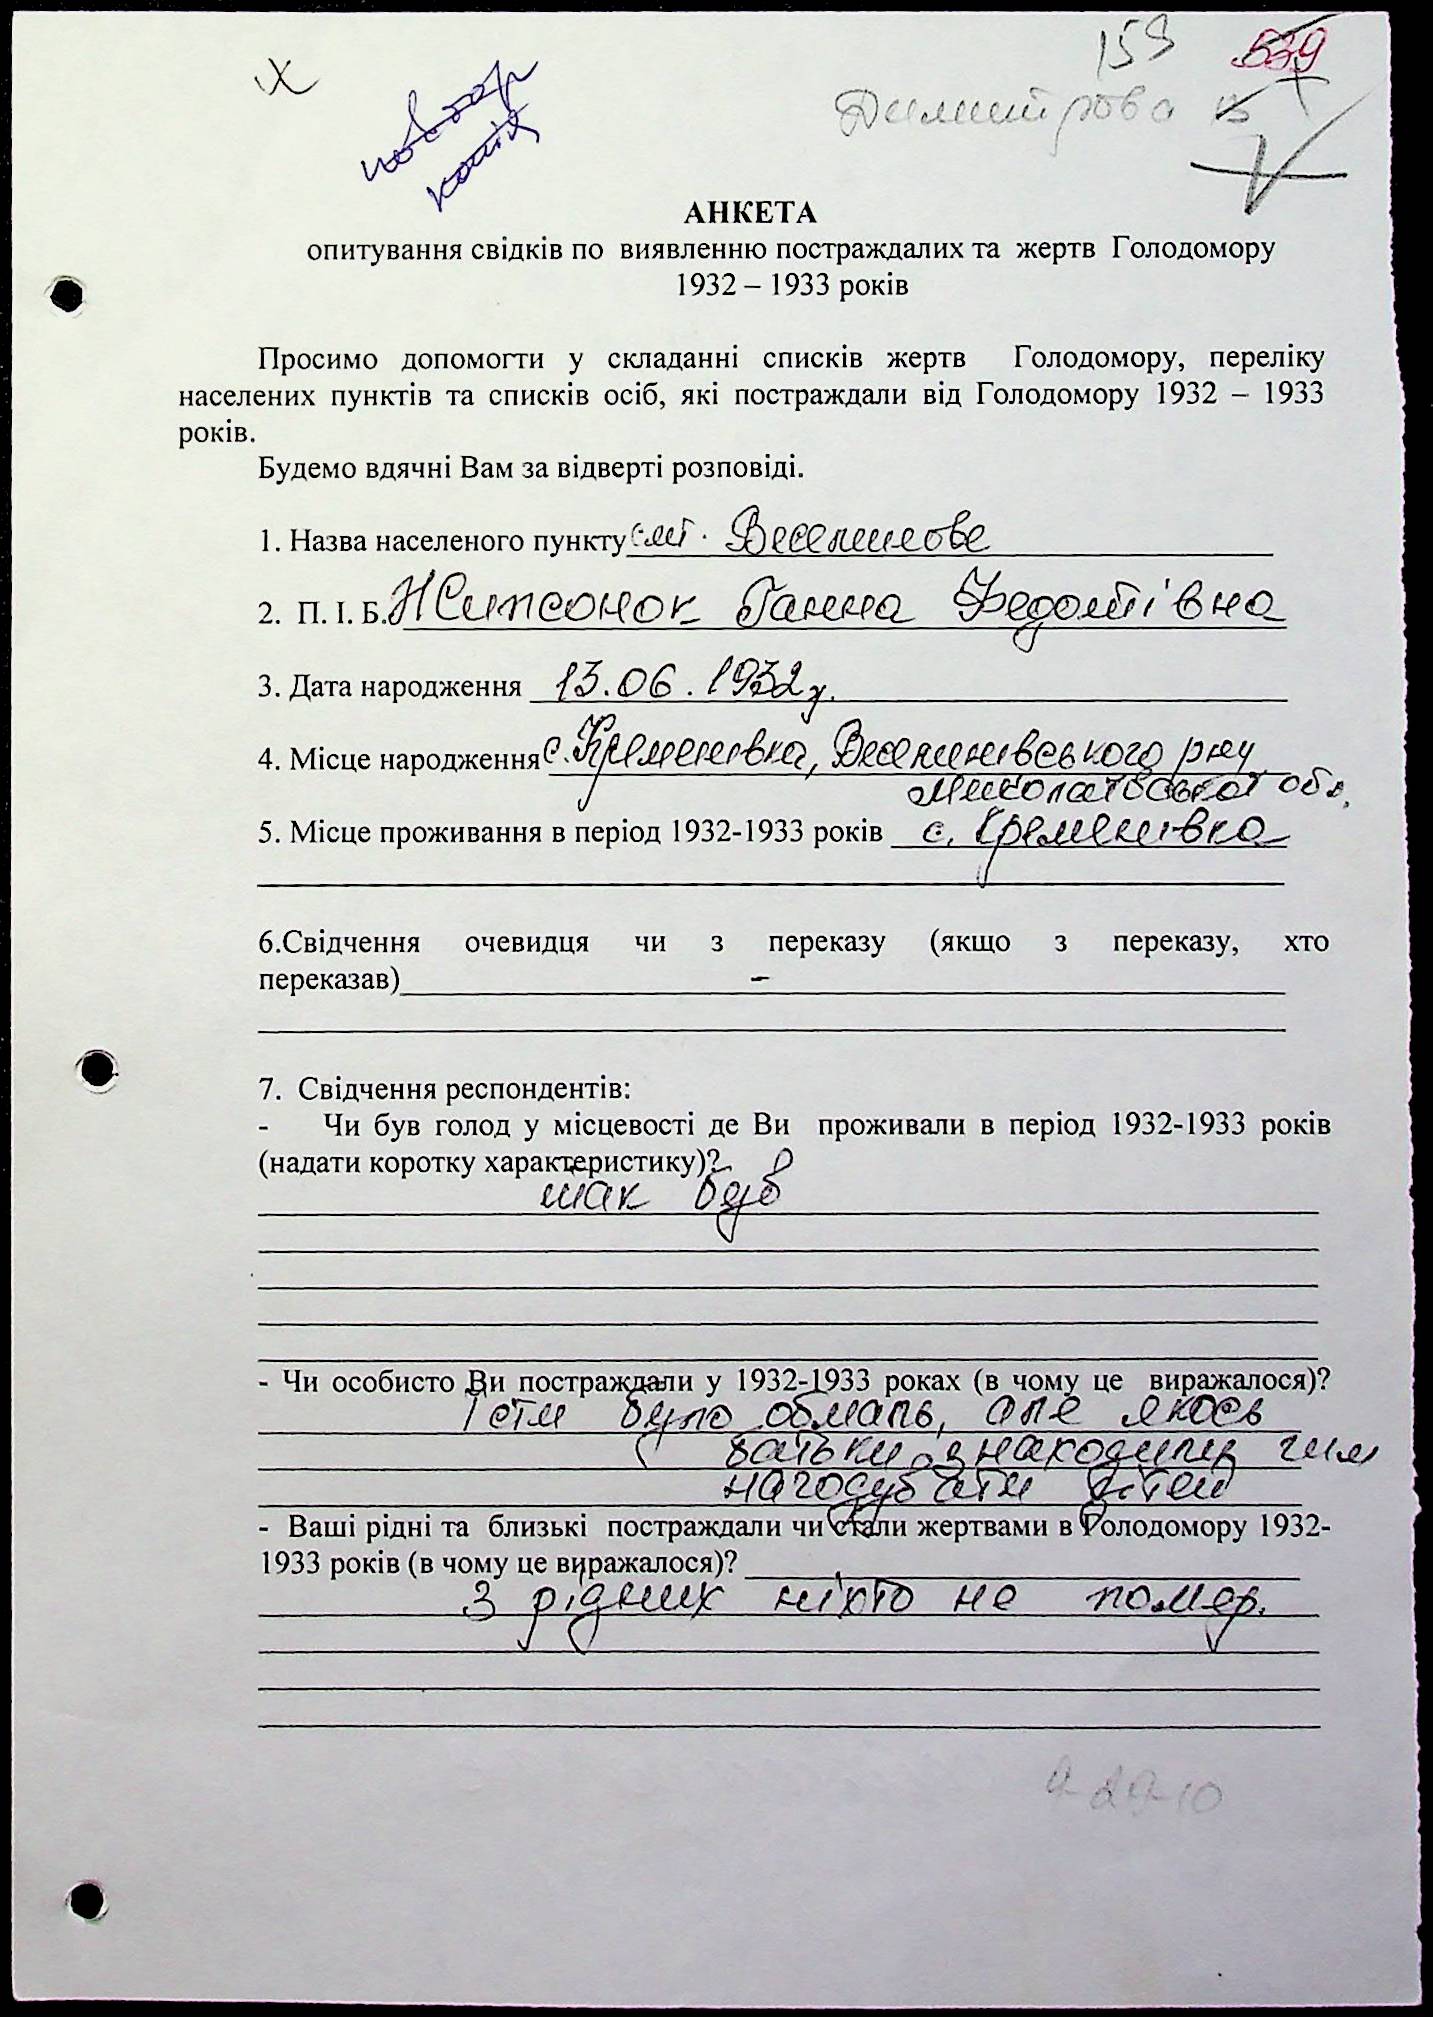 159 539
Димитрова
повтор
копія
АНКЕТА
опитування свідків по виявленню постраждалих та жертв Голодомору
1932 – 1933 років
Просимо допомогти у складанні списків жертв Голодомору, переліку
населених пунктів та списків осіб, які постраждали від Голодомору 1932 – 1933
років.
Будемо вдячні Вам за відверті розповіді.
1. Назва населеного пункту смт. Веселинове
2. П. І. Б. Ганна Федотівна
3. Дата народження 13.06.1932р.
4. Місце народження с. Кременівка, Веселинівського р-ну
Миколаївської обл.
5. Місце проживання в період 1932-1933 років с. Кременівка
6.Свідчення очевидця чи з переказу (якщо з переказу, хто
переказав) -
7. Свідчення респондентів:
- Чи був голод у місцевості де Ви проживали в період 1932-1933 років
(надати коротку характеристику)?
так був
- Чи особисто Ви постраждали у 1932-1933 роках (в чому це виражалося)?
Їсти було обмаль, але якось
батьки знаходили чим
нагодувати дітей
- Ваші рідні та близькі постраждали чи стали жертвами в Голодомору 1932-
1933 років (в чому це виражалося)?
З рідних ніхто не помер.